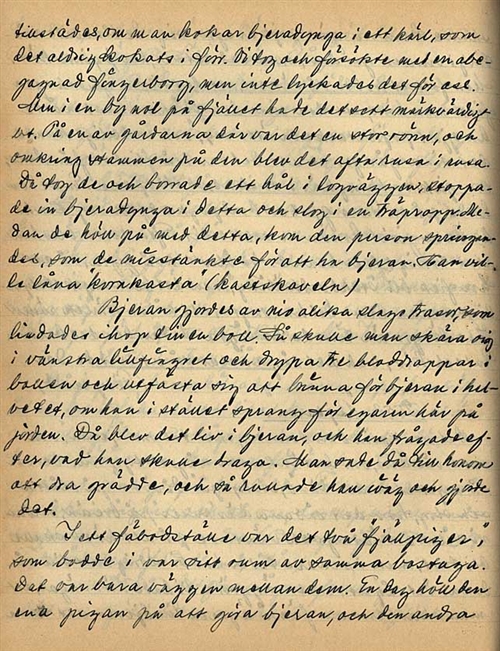 tillstädes, om man kokar bjeradynga i ett kärl, som
det aldrig kokats i förr. De tog och försökte med en
men inte lyckades det för oss.
Men i en by nol på fjället hade det sett märkvärdigt
ut. På en av gårdarna där var det en stor rönn, och
omkring stammen på den blev det ofta rusa i rusa.
Då tog de och borrade ett hål i logväggen, stoppa-
de in bjeradynga i detta och slog i en träpropp. Me-
dan de höll på med detta, kom den person springan-
des, som de misstänkte för att ha bjeran. Han vil-
le låna "kornkasta" (kastskoveln)
Bjeran gjordes av nio olika slags trasor, som
lindades ihop till en boll. Så skulle man skära sig
i vänstra lillfingret och droppa tre bloddroppar i
bollen och utfästa sig att brinna för bjeran i hel-
vetet, om han i stället sprang för egarin här på
jorden. Då blev det liv i bjeran, och han frågade ef-
ter, vad han skulle draga. Man sade då till honom
att dra grädde, och så rullade han iväg och gjorde
det.
I ett fäbodställe var det två "fjällpigor",
som bodde i var sitt rum av samma bostuga.
Det var bara väggen mellan dem. En dag höll den
ena pigan på att göra bjeran, och den andra